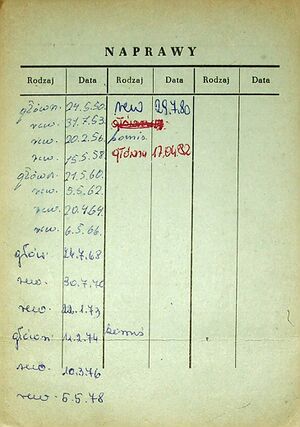 NAPRAWY
Rodzaj Data Rodzaj Data Rodzaj Data
główn. 24.5.50. rew 29.7.80
rew. 31.7.53.
rew. 20.2.56
rew. 15.5.58. główna 17.04.82
główn. 21.5.60.
rew. 5.5.62.
rew. 20.4.64.
rew. 6.5.66.
głów 24.7.68
rew. 30.7.70
rew. 22.1.73
główn 4.2.74
rew. 10.3.76
rew. 5.5.78